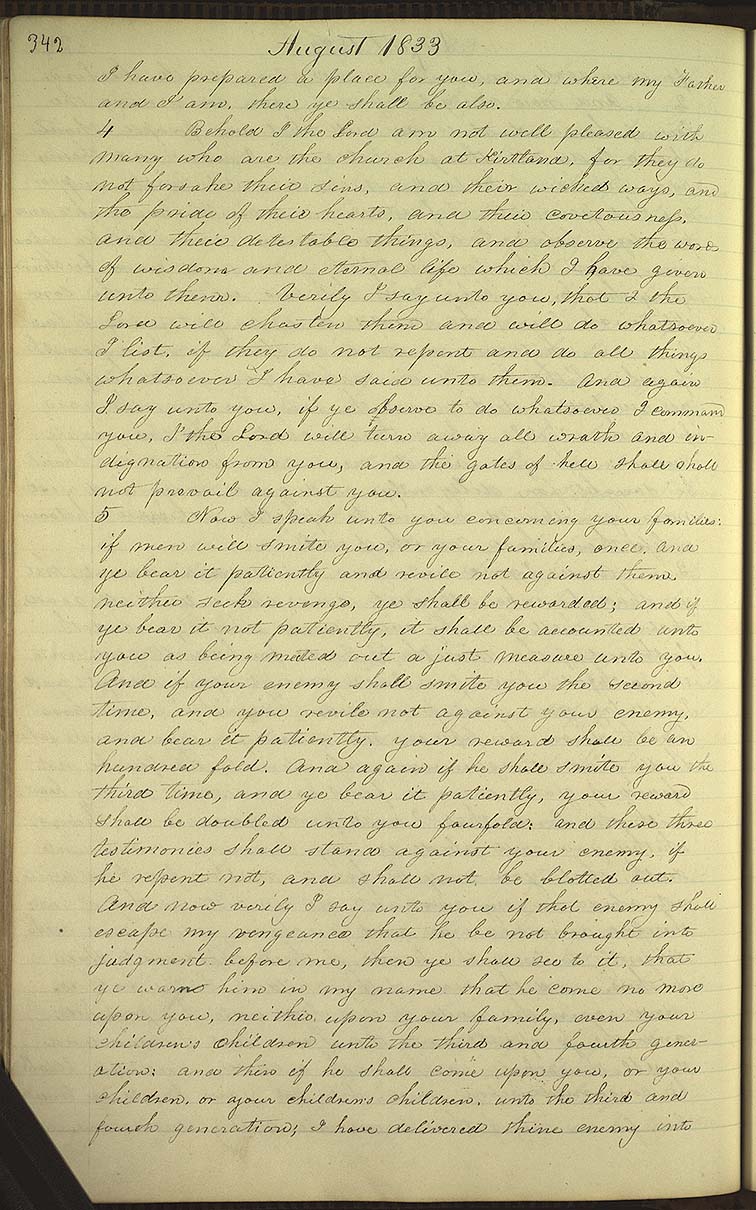 342
August 1833
I have prepared a place for you, and where my Father
and I am, there ye shall be also.
4 Behold I the Lord am not well pleased with
many who are the church at Kirtland, for they do
not forsake their sins, and their wicked ways, and
the pride of their hearts, and their covetousness,
and their detestable things, and observe the words
of wisdom and eternal life which I have given
unto them. Verily I say unto you, that I the
Lord will chasten them and will do whatsoever
I list, if they do not repent and do all things
whatsoever I have said unto them. And again
I say unto you, if ye observe to do whatsoever I command
you, I the Lord will turn away all wrath and in-
dignation from you, and the gates of hell shall shall
not prevail against you.
5 Now I speak unto you concerning your families:
if men will smite you, or your families, once, and
ye bear it patiently and revile not against them,
neither seek revenge, ye shall be rewarded; and if
ye bear it not patiently, it shall be accounted unto
you as being meted out a just measure unto you.
And if your enemy shall smite you the second
time, and you revile not against your enemy,
and bear it patiently. your reward shall be an
hundred fold. And again if he shall smite you the
third time, and ye bear it patiently, your reward
shall be doubled unto you fourfold: and these three
testimonies shall stand against your enemy, if
he repent not, and shall not be blotted out.
And now verily I say unto you if that enemy shall
escape my vengeance that he be not brought into
judgment before me, then ye shall see to it, that
ye warn him in my name that he come no more
upon you, neither upon your family, even your
children's children unto the third and fourth gener-
ation: and then if he shall come upon you, or your
children, or your children's children, unto the third and
fourth generation; I have delivered thine enemy into